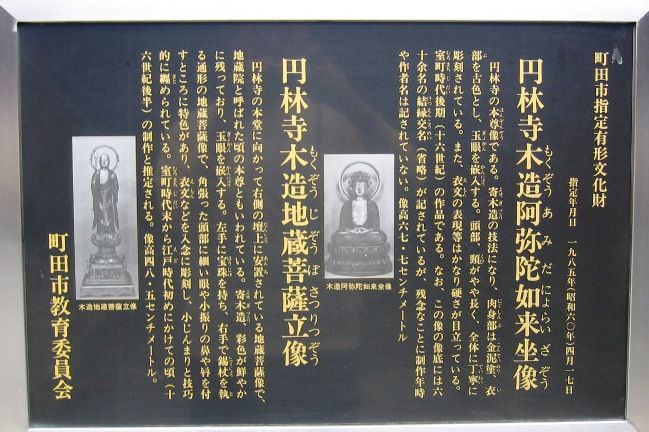 町田市指定有形文化財
指定年月日 一九八五年(昭和六〇年)四月一七日
円林寺木造阿弥陀如来坐像
もくぞうあみだにょらいざぞう
円林寺の本尊像である。寄木造の技法になり、肉身部は金泥塗、衣
部を古色とし、玉眼を嵌入する。頭部、頸がやや長く、全体に丁寧に
彫刻されている。また、衣文の表現等はかなり硬さが目立っている。
室町時代後期(十六世紀)の作品である。なお、この像の像底には六
十余名の結縁交名(省略)が記されているが、残念なことに制作年時
や作者名は記されていない。像高六七・七センチメートル
木造阿弥陀如来坐像
円林寺木造地蔵菩薩立像
もくぞうじぞうぼさつりつぞう
円林寺の本堂に向かって右側の壇上に安置されている地蔵菩薩像で、
地蔵院と呼ばれた頃の本尊ともいわれている。寄木造、彩色が鮮やか
に残っており、玉眼を嵌入する。左手に宝珠を持ち、右手で錫杖を執
る通形の地蔵菩薩像で、角張った頭部に細い眼や小振りの鼻や唇を付
すところに特色があり、衣文などを入念に彫刻し、小じんまりと技巧
的に纏められている。室町時代末から江戸時代初めにかけての頃(十
六世紀後半)の制作と推定される。像高四八・五センチメートル。
木造地蔵菩薩立像
町田市教育委員会